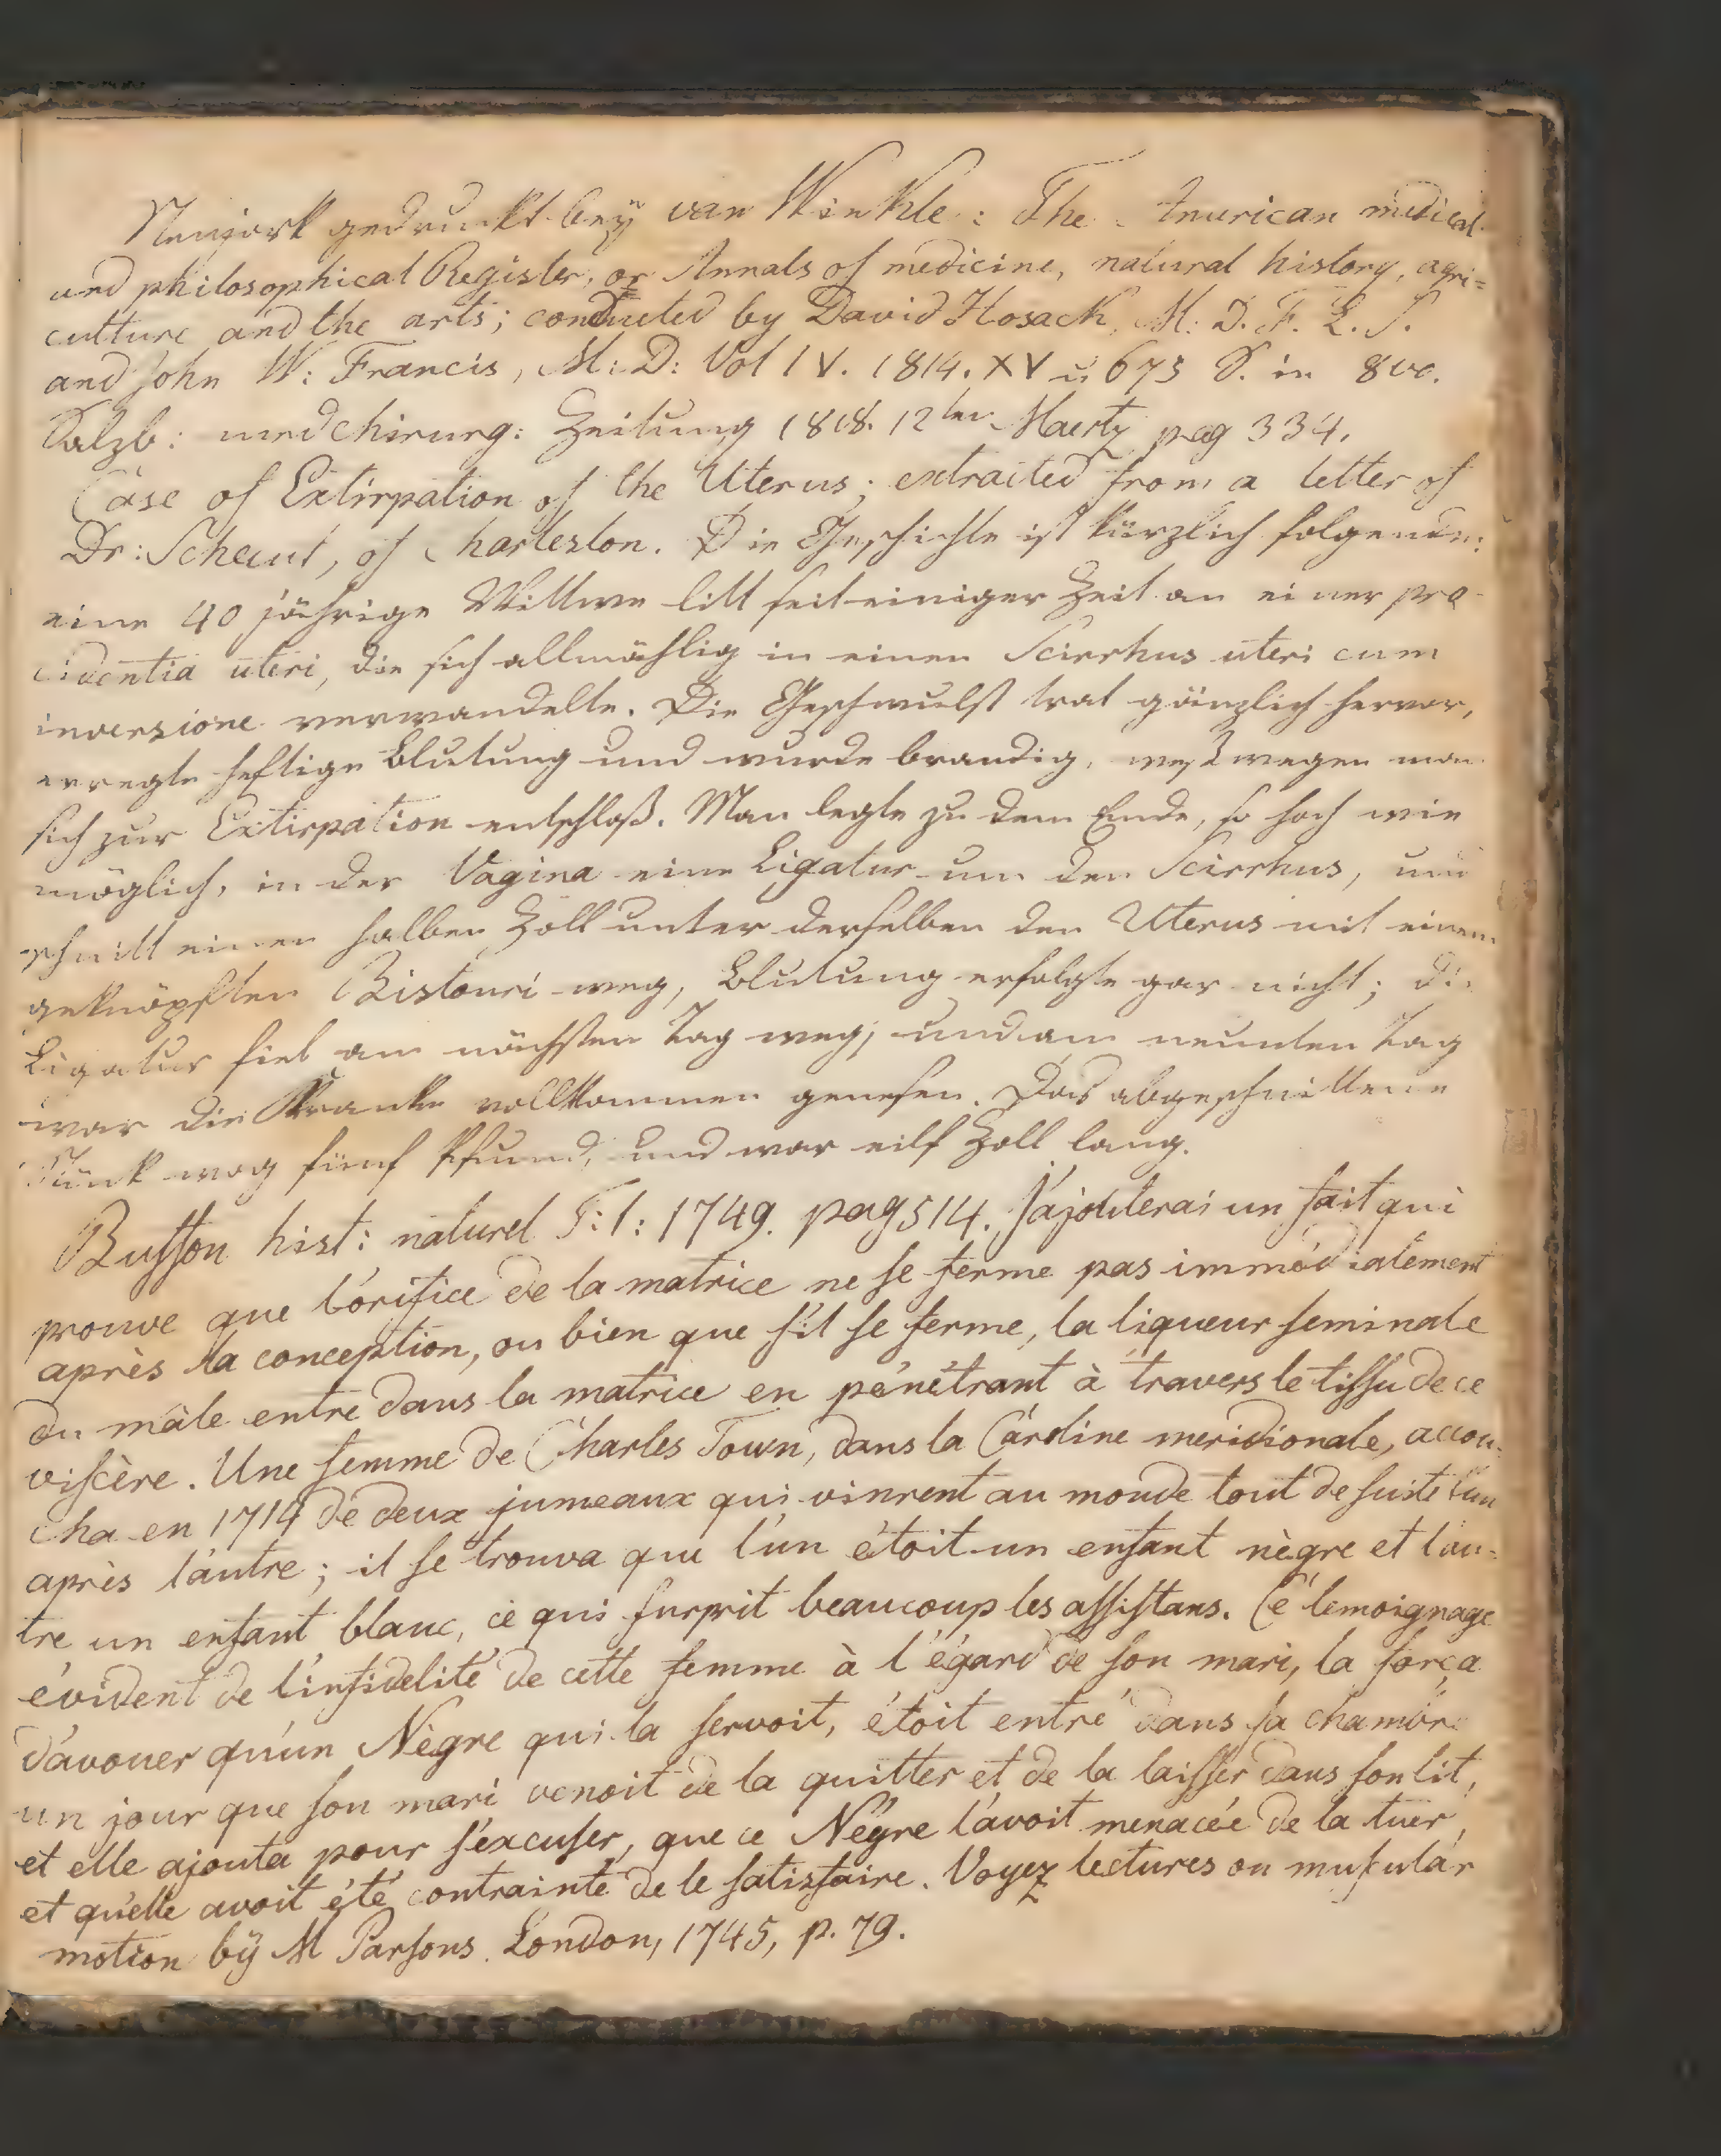 Neujork gedruckt bey van Winkle: The American medical
and philosophical Register, or Annals of medicine, natural history, agri=
culture and the arts; conducted by David Hosack, M: D. F. L. S.
and John W: Francis, M: D: Vol IV. 1814. XV u 675 S. in 8vo.
Salzb: med chirurg: Zeitung 1818. 12ten Maerz pag 334.
Case of Extirpation of the Uterus; extracted from a letter of
Dr: Schecut, of Charleston. Die Geschichte ist kürzlich folgende:
eine 40 jährige Wittwe litt seit einiger Zeit an einer pro-
cidentia uteri, die sich allmählig in einen Scirrhus uteri cum
inversione verwandelte. Die Geschwulst trat gänzlich hervor,
erregte heftige Blutung und wurde brandig, weßwegen man
sich zur Extirpation entschloß. Man legte zu dem Ende, so hoch wie
möglich, in der Vagina eine Ligatur um den Scirrhus, und
schnitt einen halben Zoll unter derselben den Uterus mit einem
geknöpften Bistouri weg, Blutung erfolgte gar nicht; die
Ligatur fiel am nächsten Tag weg, und am neunten Tag
war die Kranke vollkommen genesen. Das abgeschnittene
Stück wog fünf Pfund, und war eilf Zoll lang.
Buffon hist: naturel T: 1: 1749. pag 514. J'ajouterai un fait qui
prouve que l'orifice de la matrice ne se ferme pas immédiatement
après la conception, ou bien que s'il se ferme, la liqueur seminale
du mâle entre dans la matrice en pénétrant à travers le tissu de ce
viscère. Une femme de Charles Town, dans la Caroline meridionale, accou-
cha en 1714 de deux jumeaux qui vinrent au monde tout de suite l'un
après l'autre; il se trouva que l'un étoit un enfant nègre et l'au=
tre un enfant blanc, ce qui surprit beaucoup les assistans. Ce temoignage
évident de l'infidelité de cette femme à l'égard de son mari, la força
d'avouer qu'un Nègre qui la servoit, étoit entré dans sa chambre
un jour que son mari venoit de la quitter et de la laisser dans son lit,
et elle ajouta pour s'excuser, que ce Négre l'avoit menacée de la tuer,
et qu'elle avoit été contrainte de le satisfaire. Voyez lectures on muskular
motion bÿ M Parsons. London, 1745, p. 79.